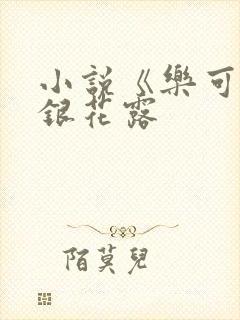 小說《樂可
銀花露
陌莫兒